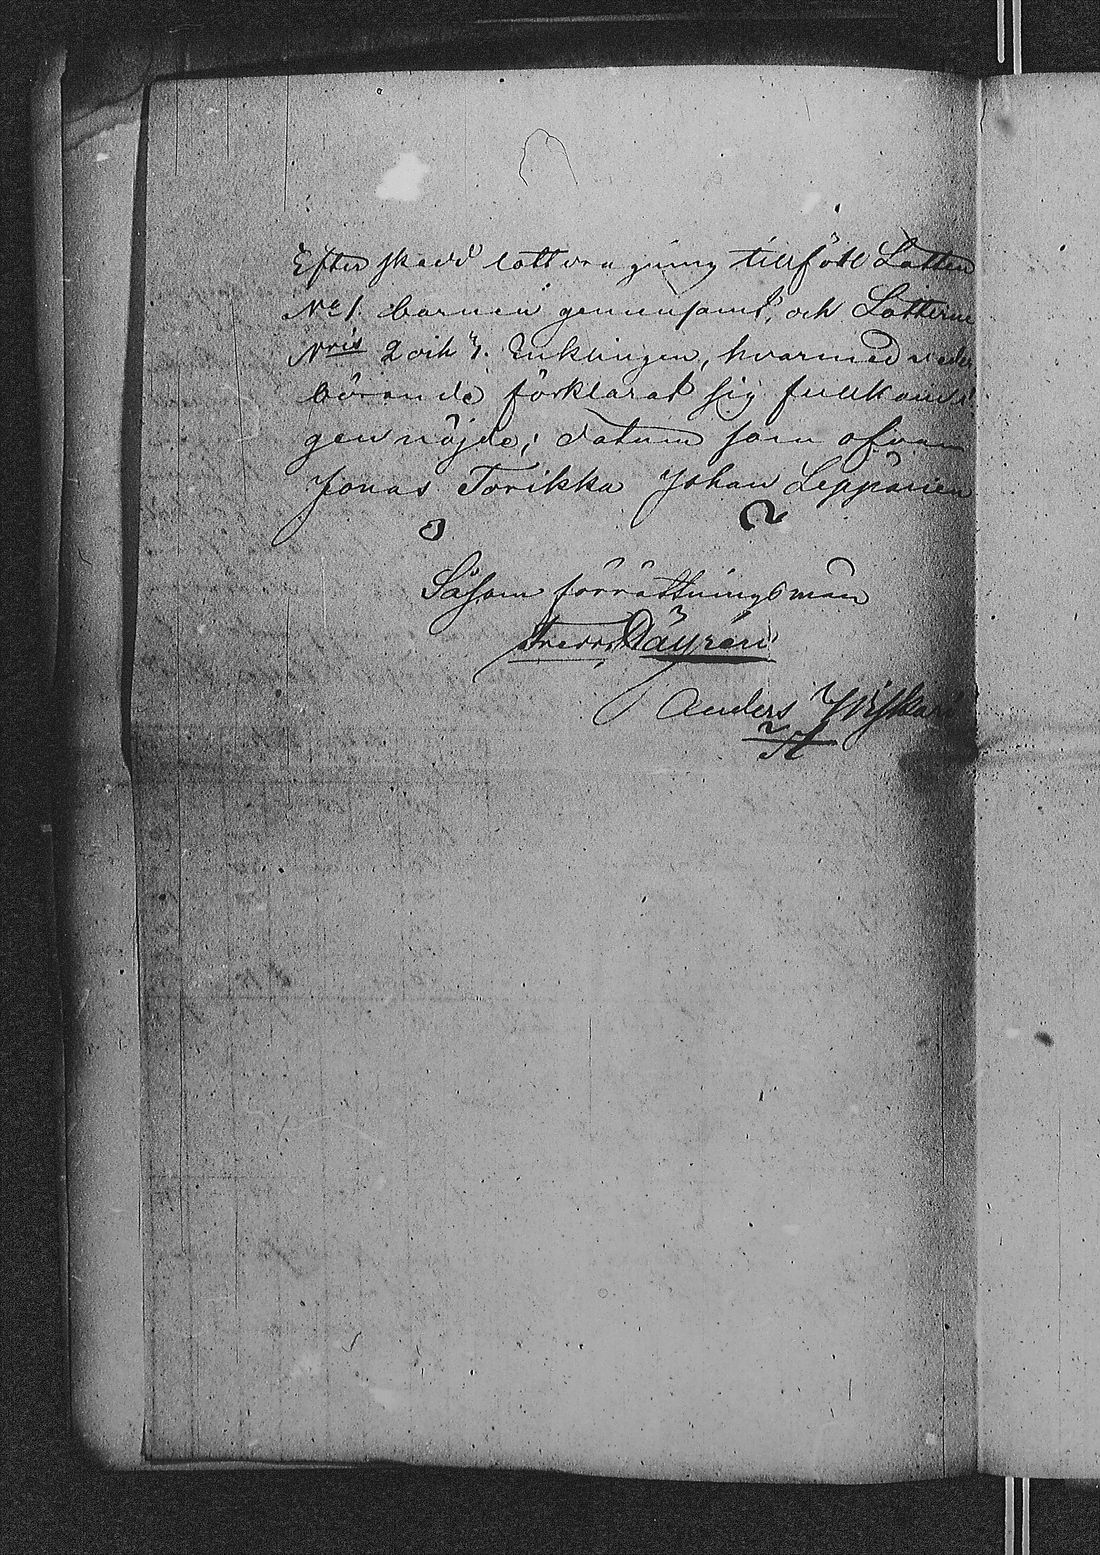 Efter skedd lottdragning tillföll Lotten
No 1. barnen gemensamt, och Lotterne
Nris 2 och 3. Enklingen, hvarmed veder
börande förklarat sig fullkomli
gen nöjde; datum som ofvan
Jonas Torikka Johan Leppänen
Såsom förrättningsmän
Fredr Däyrén
Anders